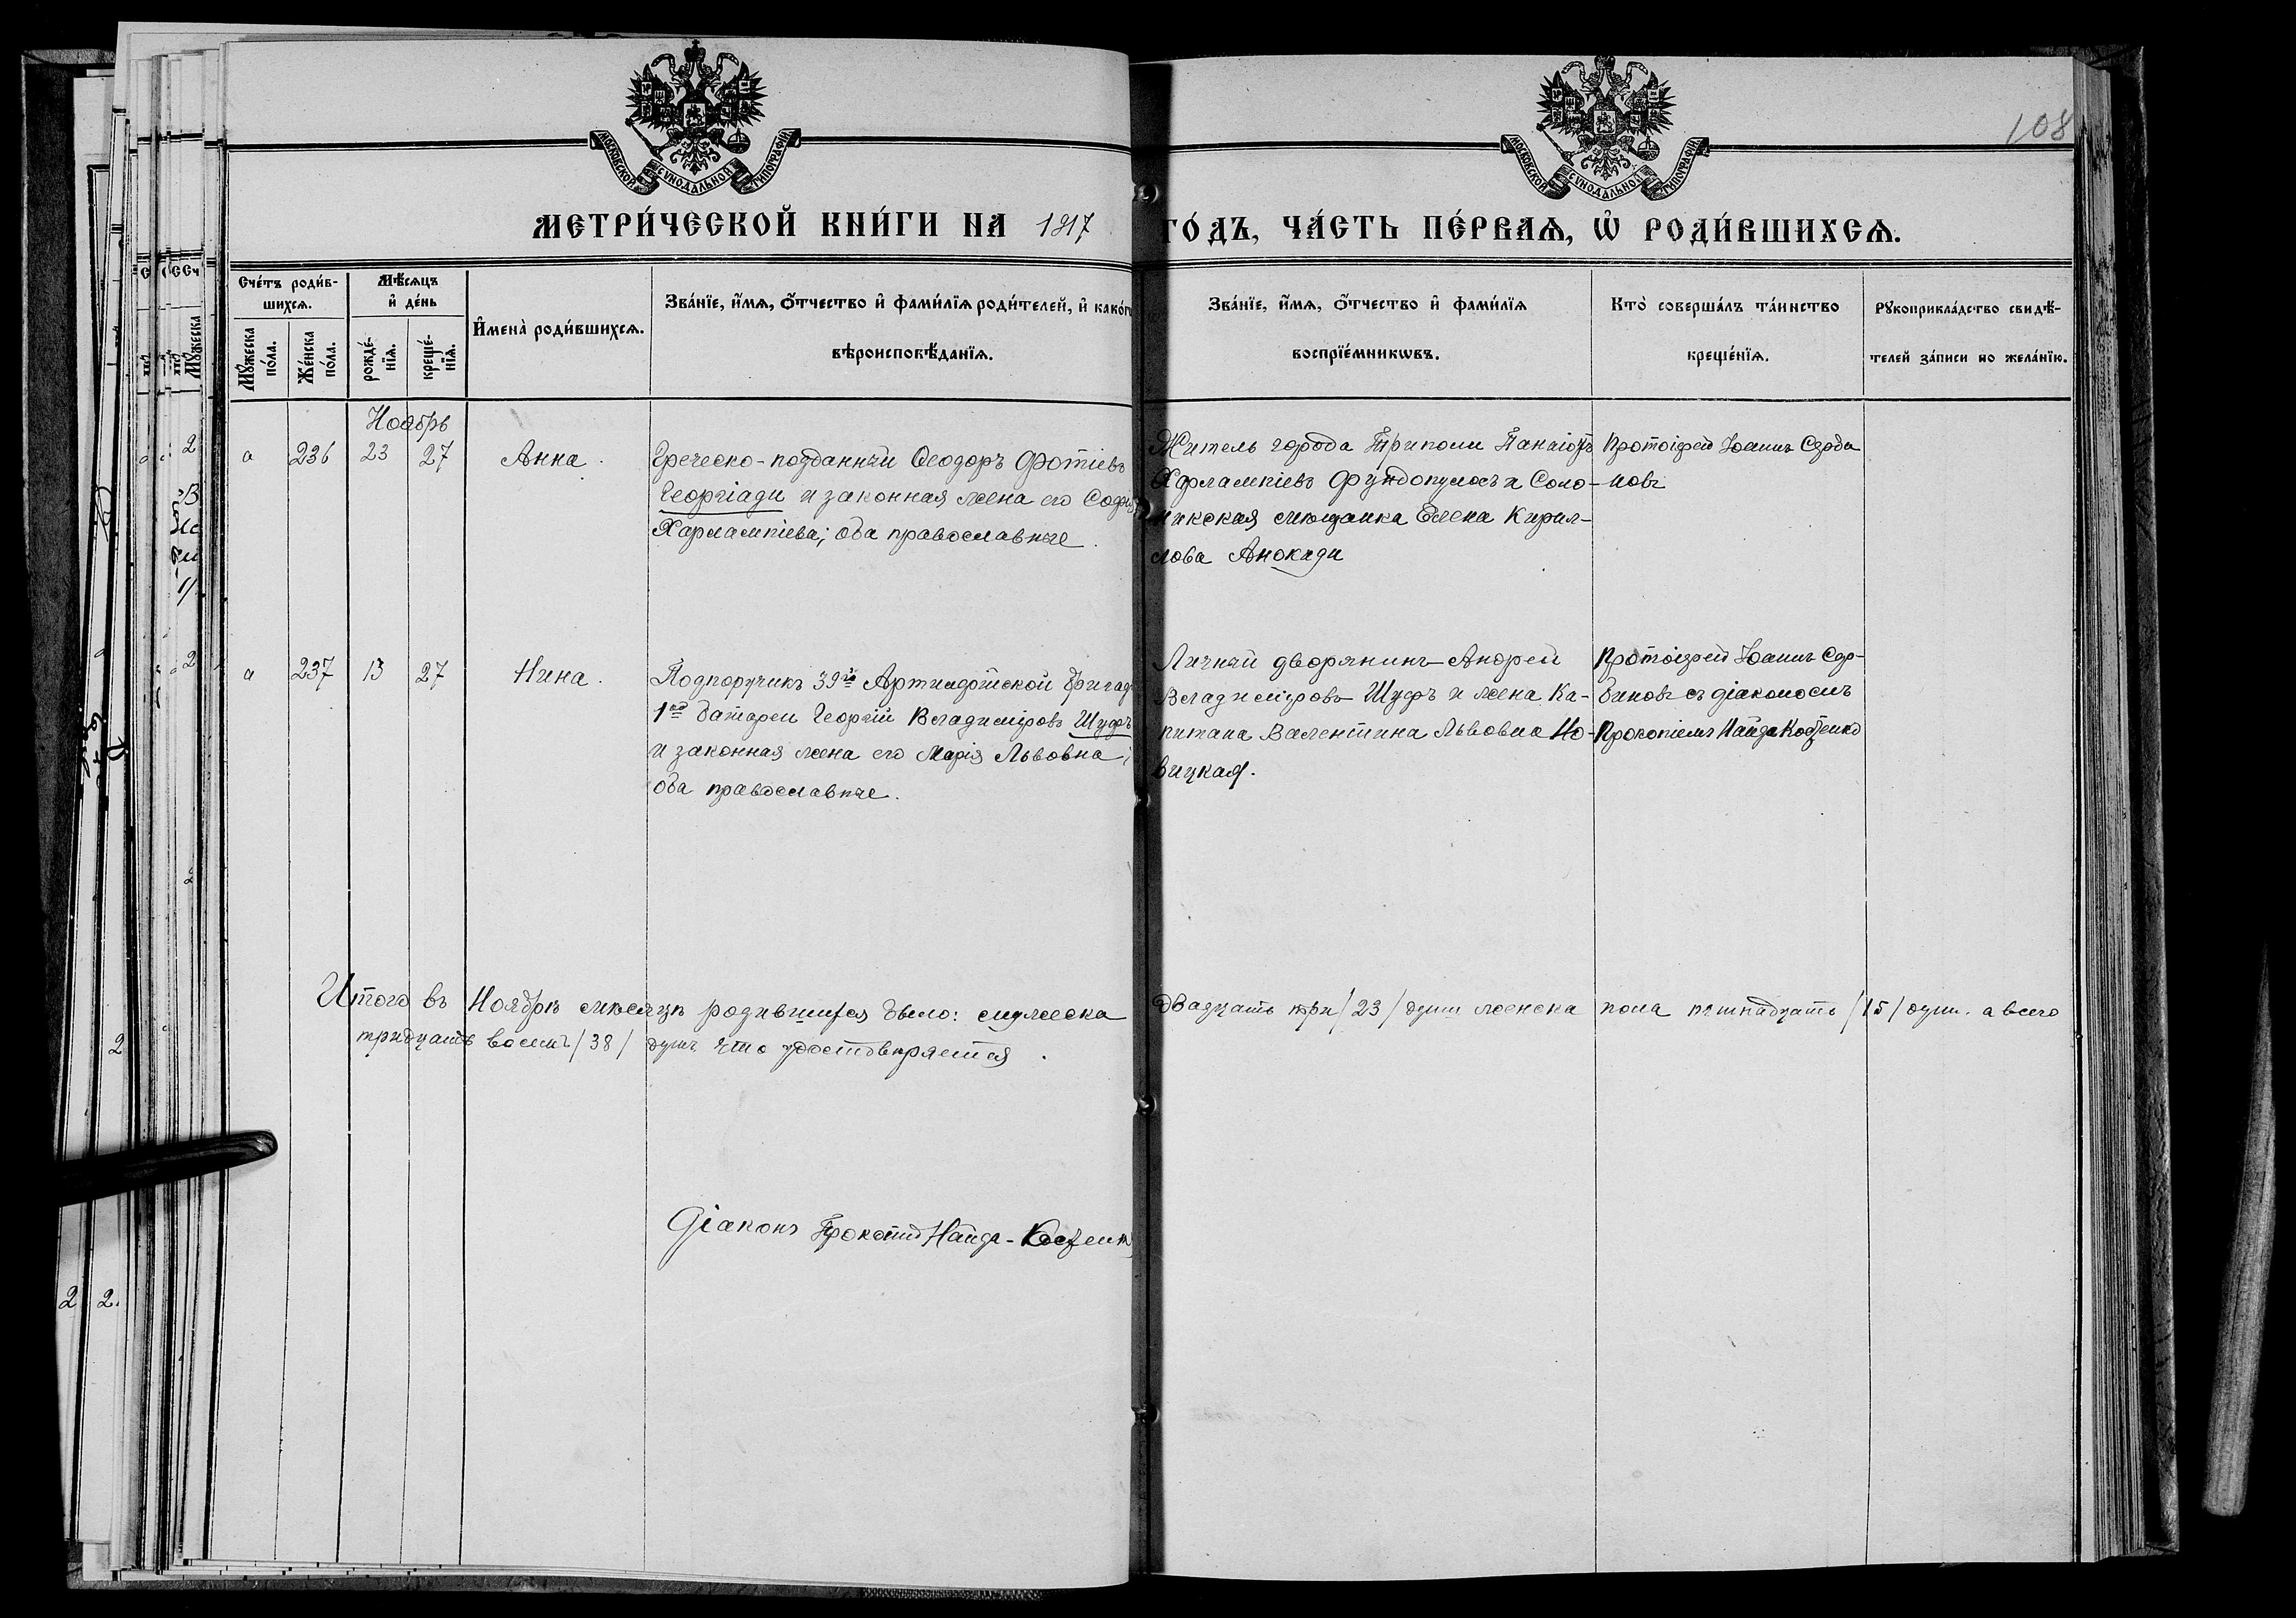 МОСКОВСКОЙ СѴНОДАЛЬНОЙ ТИПОГРАФІИ
МОСКОВСКОЙ СѴНОДАЛЬНОЙ ТИПОГРАФІИ
108
МЕТРИ́ЧЕСКОЙ КНИ́ГИ НА 1917 ГО́ДЪ, ЧА́СТЬ ПЕ́РВАѦ, Ѡ҆ РОДИ́ВШИХСѦ.
Сче́тъ роди́в-
шихсѧ.
Мꙋ́жеска по́ла.
Же́нска по́ла.
Мѣ́сѧцъ
и҆ де́нь
рожде́-
нїѧ.
креще́-
нїѧ.
И҆мена̀ роди́вшихсѧ.
Зва́нїе, и҆́мѧ, ѻ҆́тчество и҆ фами́лїѧ роди́телей, и҆ како́гѡ
вѣроисповѣ́данїѧ.
Зва́нїе, и҆́мѧ, ѻ҆́тчество и҆ фами́лїѧ
воспрїе́мникѡвъ.
Кто̀ соверша́лъ та́инство
креще́нїѧ.
Рꙋкоприкла́дство свидѣ́-
телей за́писи по жела́нїю.
Ноябрь
а 236 23 27 Анна.
Греческо-подданный Ѳеодоръ Фотіевъ
Георгіади и законная жена его Софія
Харлампіева; оба православные.
Житель города Триполи Панаіотъ
Харлампіевъ Фундопулосъ и Соло-
никская мѣщанка Елена Кирил-
лова Анокиди
Протоіерей Іоаннъ Серби
новъ
а 237 13 27 Нина.
Подпоручикъ 39й Артилерійской бригады
1ой батареи Георгій Владиміровъ Шуфъ
и законная жена его Марія Львовна;
оба православные.
Личный дворянинъ Андрей
Владиміровъ Шуфъ и жена Ка-
питана Валентина Львовна Но-
вицкая.
Протоіерей Іоаннъ Сер-
биновъ съ діакономъ
Прокопіемъ Найда Косѣенко
Итого въ Ноябрѣ мѣсяцѣ родившихся было: мужеска двадцать три /23/ душъ женска пола пятнадцать /15/ душъ. а всего
тридцать восемь /38/ душъ что удостовѣряется.
Діаконъ Прокопій Найда-